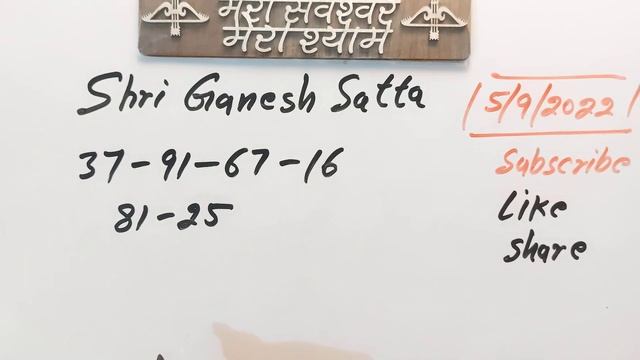 मेरा सर्वेश्वर
मेरा श्याम
Shri Ganesh Satta
5/9/2022
37-91-67-16
Subscribe
81-25
Like
Share